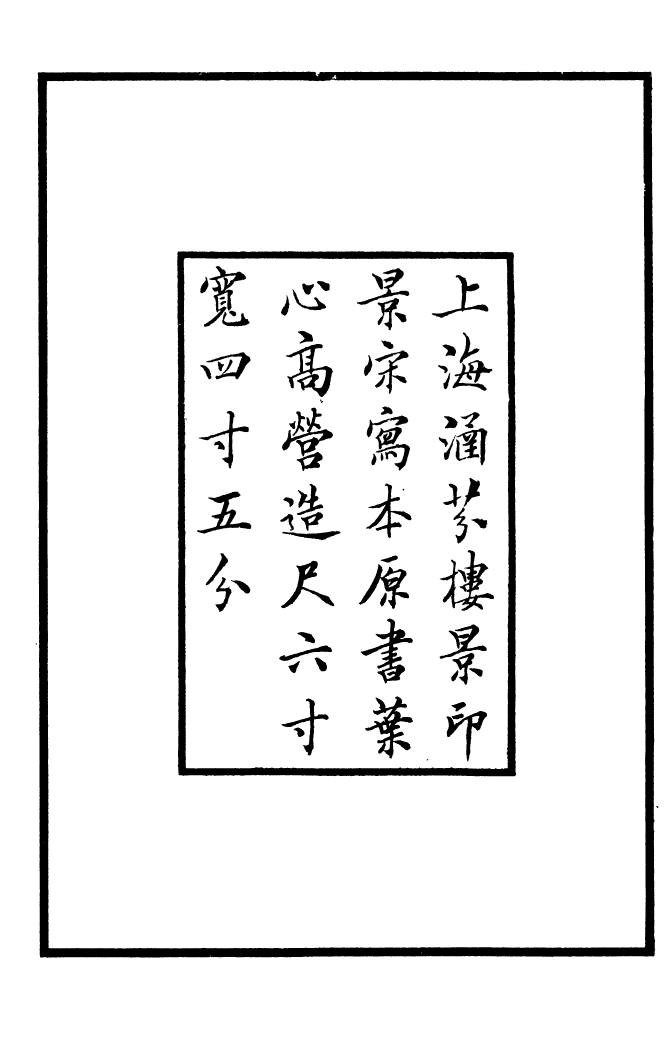 上海涵芬樓景印
景宋寫本原書葉
心高營造尺六寸
寬四寸五分